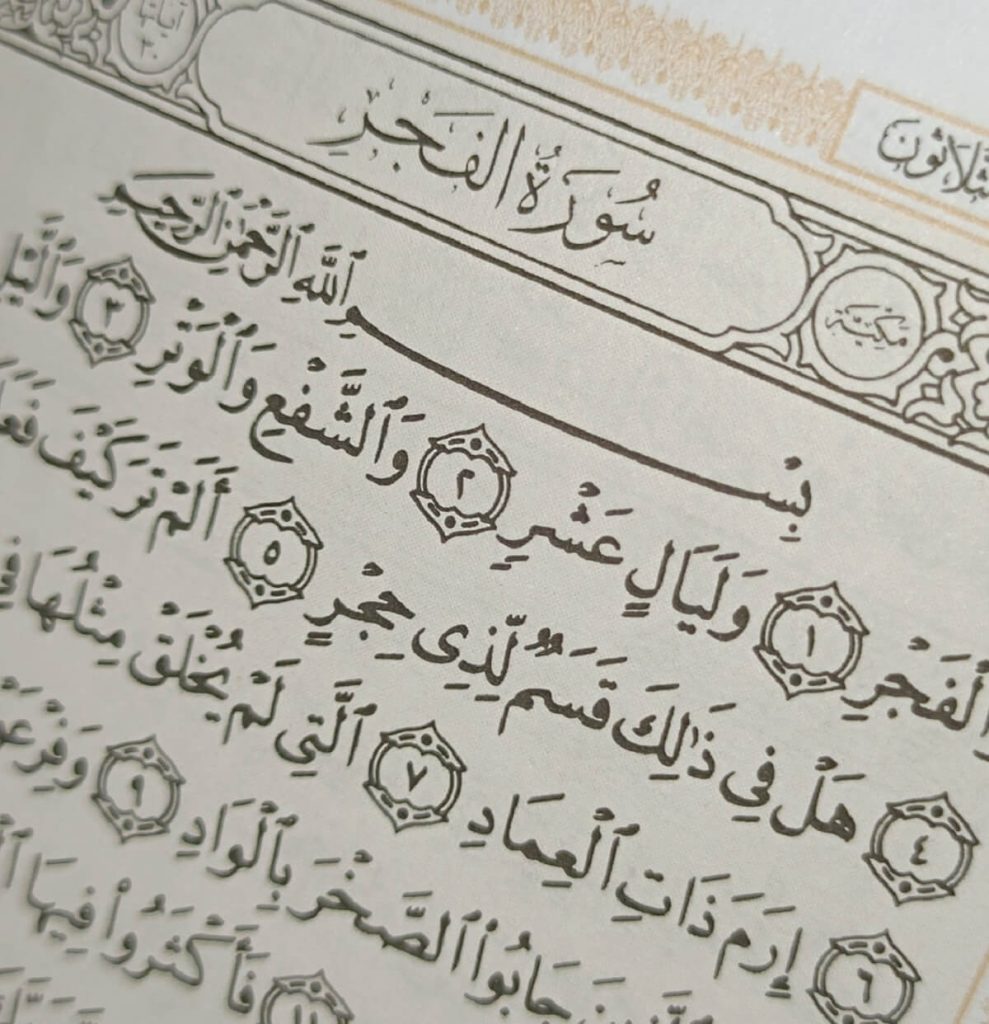 سُورَةُ الفَجْرِ
مَكِّيَّة
بِسْمِ ٱللَّهِ ٱلرَّحْمَٰنِ ٱلرَّحِيمِ
ٱلْفَجْرِ ١ وَلَيَالٍ عَشْرٍ ٢ وَٱلشَّفْعِ وَٱلْوَتْرِ ٣
٤ هَلْ فِي ذَٰلِكَ قَسَمٌ لِّذِي حِجْرٍ ٥ أَلَمْ تَرَ كَيْفَ
٦ إِرَمَ ذَاتِ ٱلْعِمَادِ ٧ ٱلَّتِي لَمْ يُخْلَقْ مِثْلُهَا
جَابُوا۟ ٱلصَّخْرَ بِٱلْوَادِ ٩
١١ فَأَكْثَرُوا۟ فِيهَا